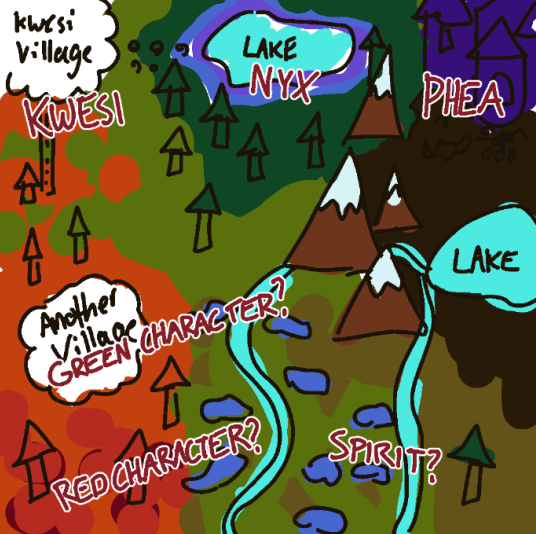 Kwesi
Village
KWESI
LAKE
NYX
PHEA
LAKE
Another
Village
GREEN CHARACTER?
RED CHARACTER?
SPIRIT?